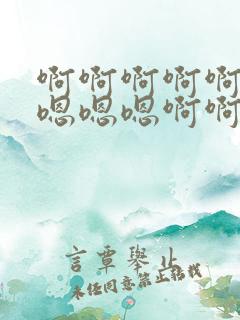 啊啊啊啊啊
嗯嗯嗯啊啊
言覃舉止
未任同意禁止转载